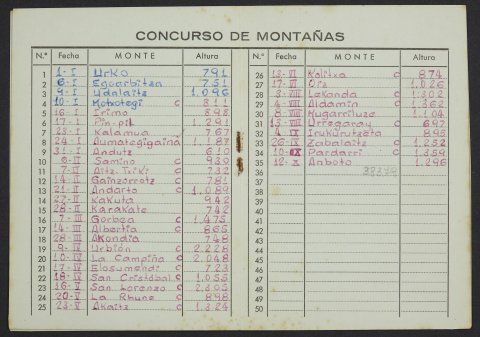 CONCURSO DE MONTAÑAS
N.º Fecha MONTE Altura
1 1-I Urko 791
2 6-I Egoarbitza 751
3 9-I Udalaitz 1.096
4 10-I Kotxotegi c 811
5 16-I Irimo 898
6 17-I Pin-pil 1.291
7 23-I Kalamua 767
8 24-I Aumategigaina 1.187
9 31-I Andutz 610
10 6-II Samiño c 930
11 7-II Aitz-Txiki c 732
12 14-II Gainzorrotz c 781
13 21-II Andarto c 1.089
14 27-II Kakuta 942
15 28-II Karakate 742
16 7-III Gorbea c 1.475
17 14-III Albertia c 865
18 28-III Akondia 748
19 9-IV Urbión c 2.228
20 10-IV La Campiña c 2.048
21 17-IV Elosumendi c 723
22 18-IV San Cristobal c 1.055
23 16-V San Lorenzo c 2.305
24 20-V La Rhune 898
25 23-V Akaitz c 1.324
N.º Fecha MONTE Altura
26 13-VI Kolitxa c 874
27 17-VI Oiz 1.026
28 Lekanda c 1.302
29 Aldamin c 1.362
30 8-VIII Mugarriluze 1.104
31 Urregaray c 697
32 4-IX Irukurutzeta 895
33 26-IX Zabalaitz c 1.252
34 10-IX Pardarri c 1.359
35 12-X Anboto c 1.296
36
37
38
39
40
41
42
43
44
45
46
47
48
49
50